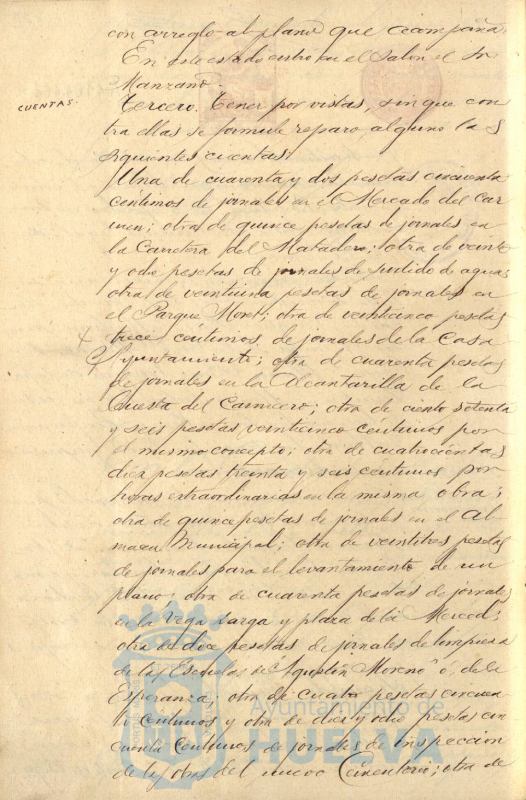 con arreglo al plano que acompaña.
En este estado entró en el Salon el Sr
Manzano.
CUENTAS.
Tercero. Tener por vistas, sin que con
tra ellas se formule reparo alguno las
siguientes cuentas:
Una de cuarenta y dos pesetas cincuenta
céntimos de jornales en el Mercado del Car
men; otra de quince pesetas de jornales en
la Carretera del Matadero; otra de veinte
y ocho pesetas de jornales de surtido de aguas;
otra de veintiuna pesetas de jornales en
el Parque Moret; otra de veinticinco pesetas
trece céntimos, de jornales de la Casa
Ayuntamiento; otra de cuarenta pesetas
de jornales en la Alcantarilla de la
Cuesta del Carnicero; otra de ciento setenta
y seis pesetas veinticinco centimos por
el mismo concepto; otra de cuatrocientas
diez pesetas treinta y seis centimos por
horas extraordinarias en la misma obra;
otra de quince pesetas de jornales en el Al
macen Municipal; otra de veintitres pesetas
de jornales para el levantamiento de un
plano; otra de cuarenta pesetas de jornales
en la Vega Larga y plaza de la Merced;
otra de doce pesetas de jornales de limpieza
de las Escuelas de "Agustin Moreno" ó, de la
Esperanza; otra de cuatro pesetas cincuen
ta centimos y otra de diez y ocho pesetas cin
cuenta Centimos de jornales de inspeccion
de las obras del nuevo Cementerio; otra de
Ayuntamiento de
HUELVA